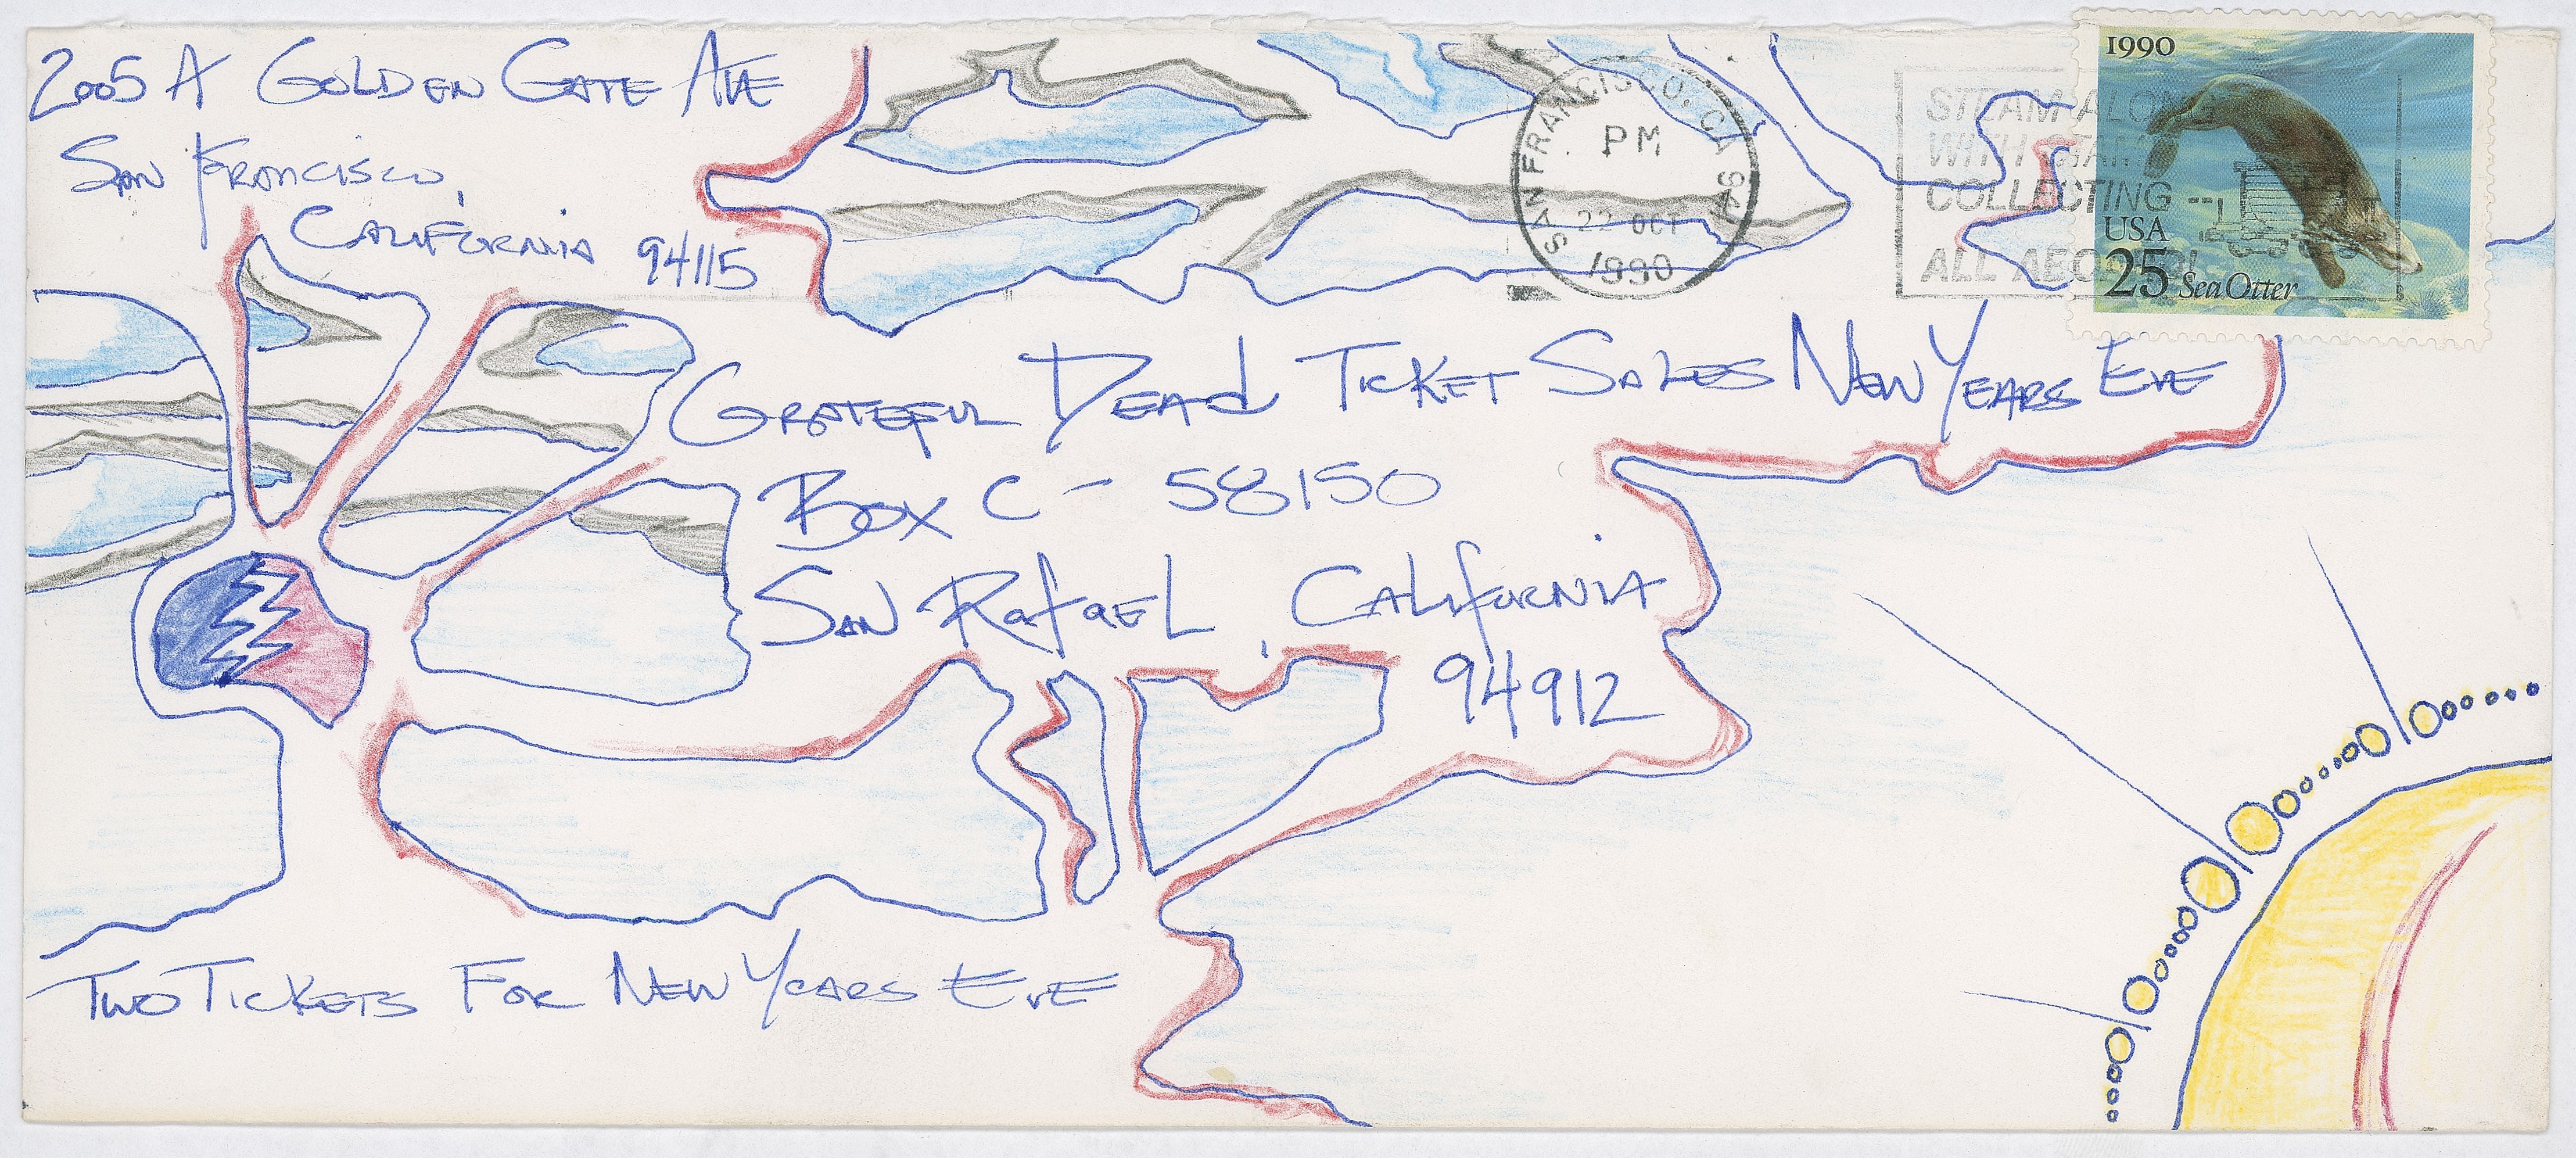 2005 A Golden Gate Ave
San Francisco,
California 94115
SAN FRANCISCO, CA 941
PM
22 OCT
1990
STEAM ALONG
WITH STAMP
COLLECTING
ALL ABOARD!
1990
USA
25 Sea Otter
Grateful Dead Ticket Sales New Years Eve
Box C - 58150
San Rafael, California
94912
Two Tickets For New Years Eve